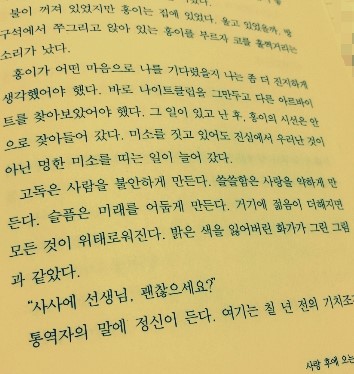 불이 꺼져 있었지만 홍이는 집에 있었다. 울고 있었을까, 방
구석에서 쭈그리고 앉아 있는 홍이를 부르자 코를 훌쩍거리는
소리가 났다.
홍이가 어떤 마음으로 나를 기다렸을지 나는 좀 더 진지하게
생각했어야 했다. 바로 나이트클럽을 그만두고 다른 아르바이
트를 찾아보았어야 했다. 그 일이 있고 난 후, 홍이의 시선은 안
으로 잦아들어 갔다. 미소를 짓고 있어도 진심에서 우러난 것이
아닌 멍한 미소를 띠는 일이 늘어 갔다.
고독은 사람을 불안하게 만든다. 쓸쓸함은 사랑을 약하게 만
든다. 슬픔은 미래를 어둡게 만든다. 거기에 젊음이 더해지면
모든 것이 위태로워진다. 밝은 색을 잃어버린 화가가 그린 그림
과 같았다.
“사사에 선생님, 괜찮으세요?”
통역자의 말에 정신이 든다. 여기는 칠 년 전의 기치조
사랑 후에 오는